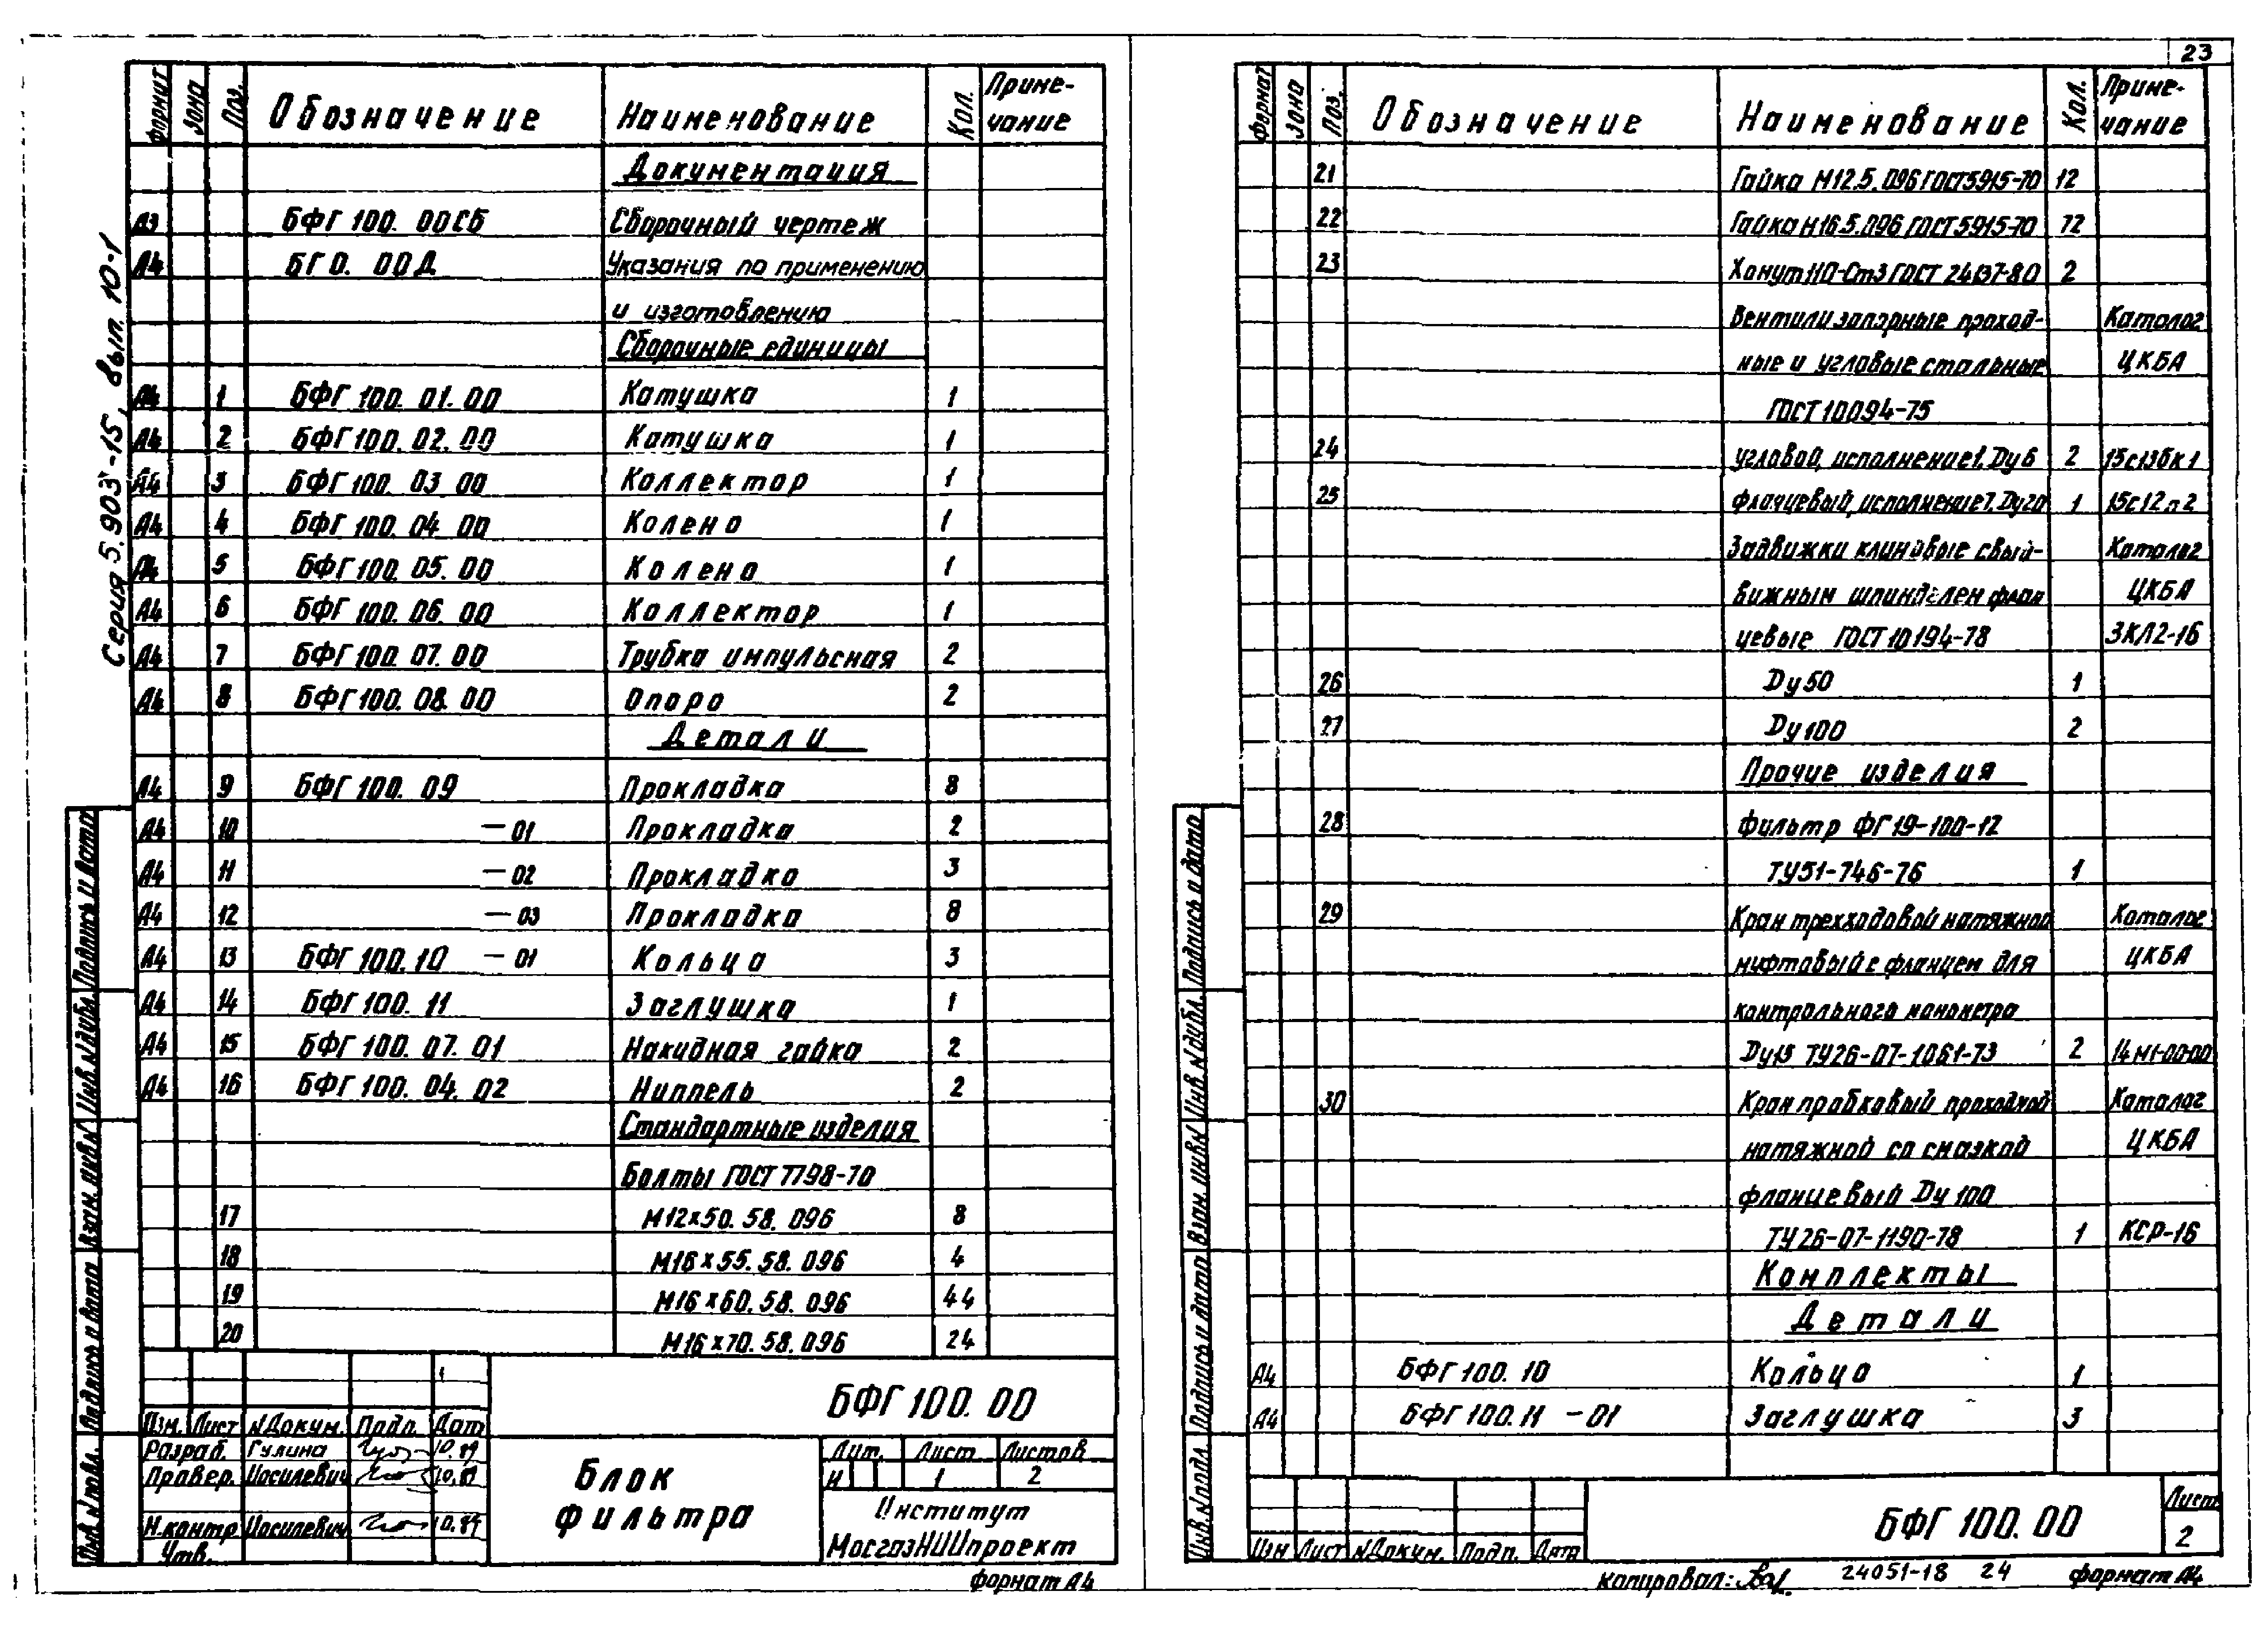 23
Серия 5.903-15, вып. 10-1
Формат Зона Поз. Обозначение Наименование Кол. Приме-
чание
Документация
А3 БФГ 100. 00СБ Сборочный чертеж
А4 БГ0. 00Д Указания по применению
и изготовлению
Сборочные единицы
А4 1 БФГ 100. 01. 00 Катушка 1
А4 2 БФГ 100. 02. 00 Катушка 1
А4 3 БФГ 100. 03 00 Коллектор 1
А4 4 БФГ 100. 04. 00 Колено 1
А4 5 БФГ 100. 05. 00 Колено 1
А4 6 БФГ 100. 06. 00 Коллектор 1
А4 7 БФГ 100. 07. 00 Трубка импульсная 2
А4 8 БФГ 100. 08. 00 Опора 2
Детали
А4 9 БФГ 100. 09 Прокладка 8
А4 10 -01 Прокладка 2
А4 11 -02 Прокладка 3
А4 12 -03 Прокладка 8
А4 13 БФГ 100. 10 -01 Кольцо 3
А4 14 БФГ 100. 11 Заглушка 1
А4 15 БФГ 100. 07. 01 Накидная гайка 2
А4 16 БФГ 100. 04. 02 Ниппель 2
Стандартные изделия
Болты ГОСТ 7798-70
17 М12х50. 58. 096 8
18 М16х55. 58. 096 4
19 М16х60. 58. 096 44
20 М16х70. 58. 096 24
БФГ 100. 00
Изм. Лист №Докум. Подп. Дата
Разраб. Гулина 10.89
Провер. Иосилевич 10.89
Н.контр Иосилевич 10.89
Утв.
Блок
фильтра
Лит. Лист Листов
И 1 2
Институт
МосгазНИИпроект
формат А4
Подпись и дата
Инв. №дубл.
Взам. инв.№
Подпись и дата
Инв. №подл.
Формат Зона Поз. Обозначение Наименование Кол. Приме-
чание
21 Гайка М12.5.096 ГОСТ5915-70 12
22 Гайка М16.5.096 ГОСТ5915-70 72
23 Хомут 110-Ст3 ГОСТ 24137-80 2
Вентили запорные проход- Каталог
ные и угловые стальные ЦКБА
ГОСТ 10094-75
24 угловой, исполнение1, Dу6 2 15с13бк1
25 фланцевый, исполнение1, Dу20 1 15с12п2
Задвижки клиновые свый- Каталог
вижным шпинделем флан ЦКБА
цевые ГОСТ 10194-78 ЗКЛ2-16
26 Dу50 1
27 Dу100 2
Прочие изделия
28 Фильтр ФГ19-100-12
ТУ51-746-76 1
29 Кран трехходовой натяжной Каталог
муфтовый с фланцем для ЦКБА
контрольного манометра
Dу15 ТУ26-07-1061-73 2 14М1-00-00
30 Кран пробковый проходной Каталог
натяжной со смазкой ЦКБА
фланцевый Dу 100
ТУ26-07-1190-78 1 КСР-16
Комплекты
Детали
А4 БФГ 100. 10 Кольцо 1
А4 БФГ 100.11 -01 Заглушка 3
БФГ 100. 00
Лист
2
Изм Лист №Докум. Подп. Дата
Подпись и дата
Инв. №дубл.
Взам. инв.№
Подпись и дата
Инв. №подл.
Копировал: 24051-18 24 формат А4